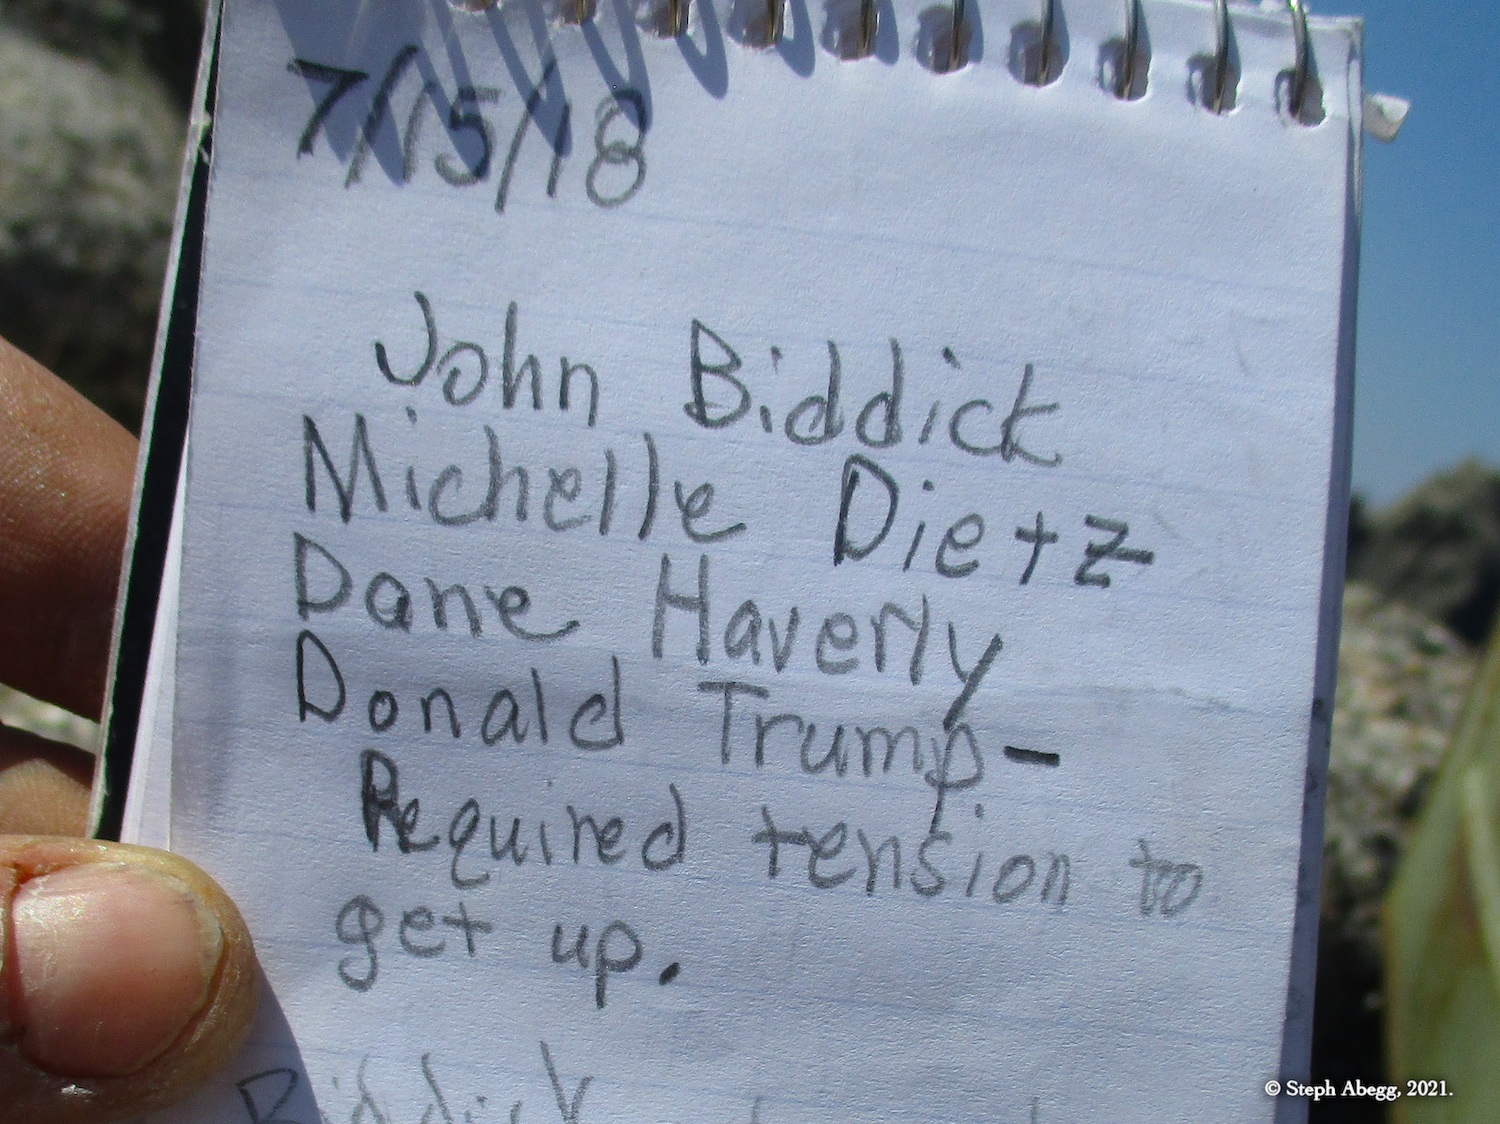 7/15/18
John Biddick
Michelle Dietz
Dane Haverly
Donald Trump-
Required tension to
get up.
Biddick
© Steph Abegg, 2021.